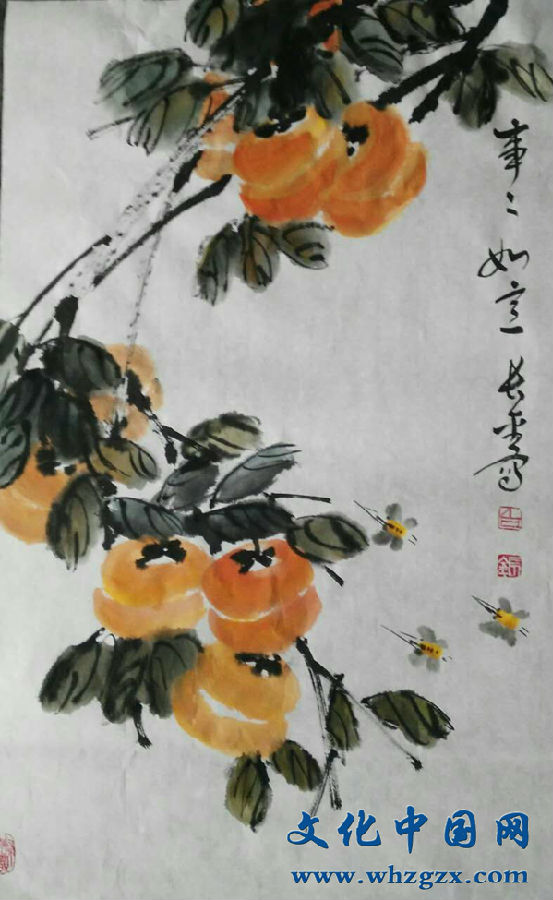 事〻如意 长写
文化中国网
www.whzgzx.com